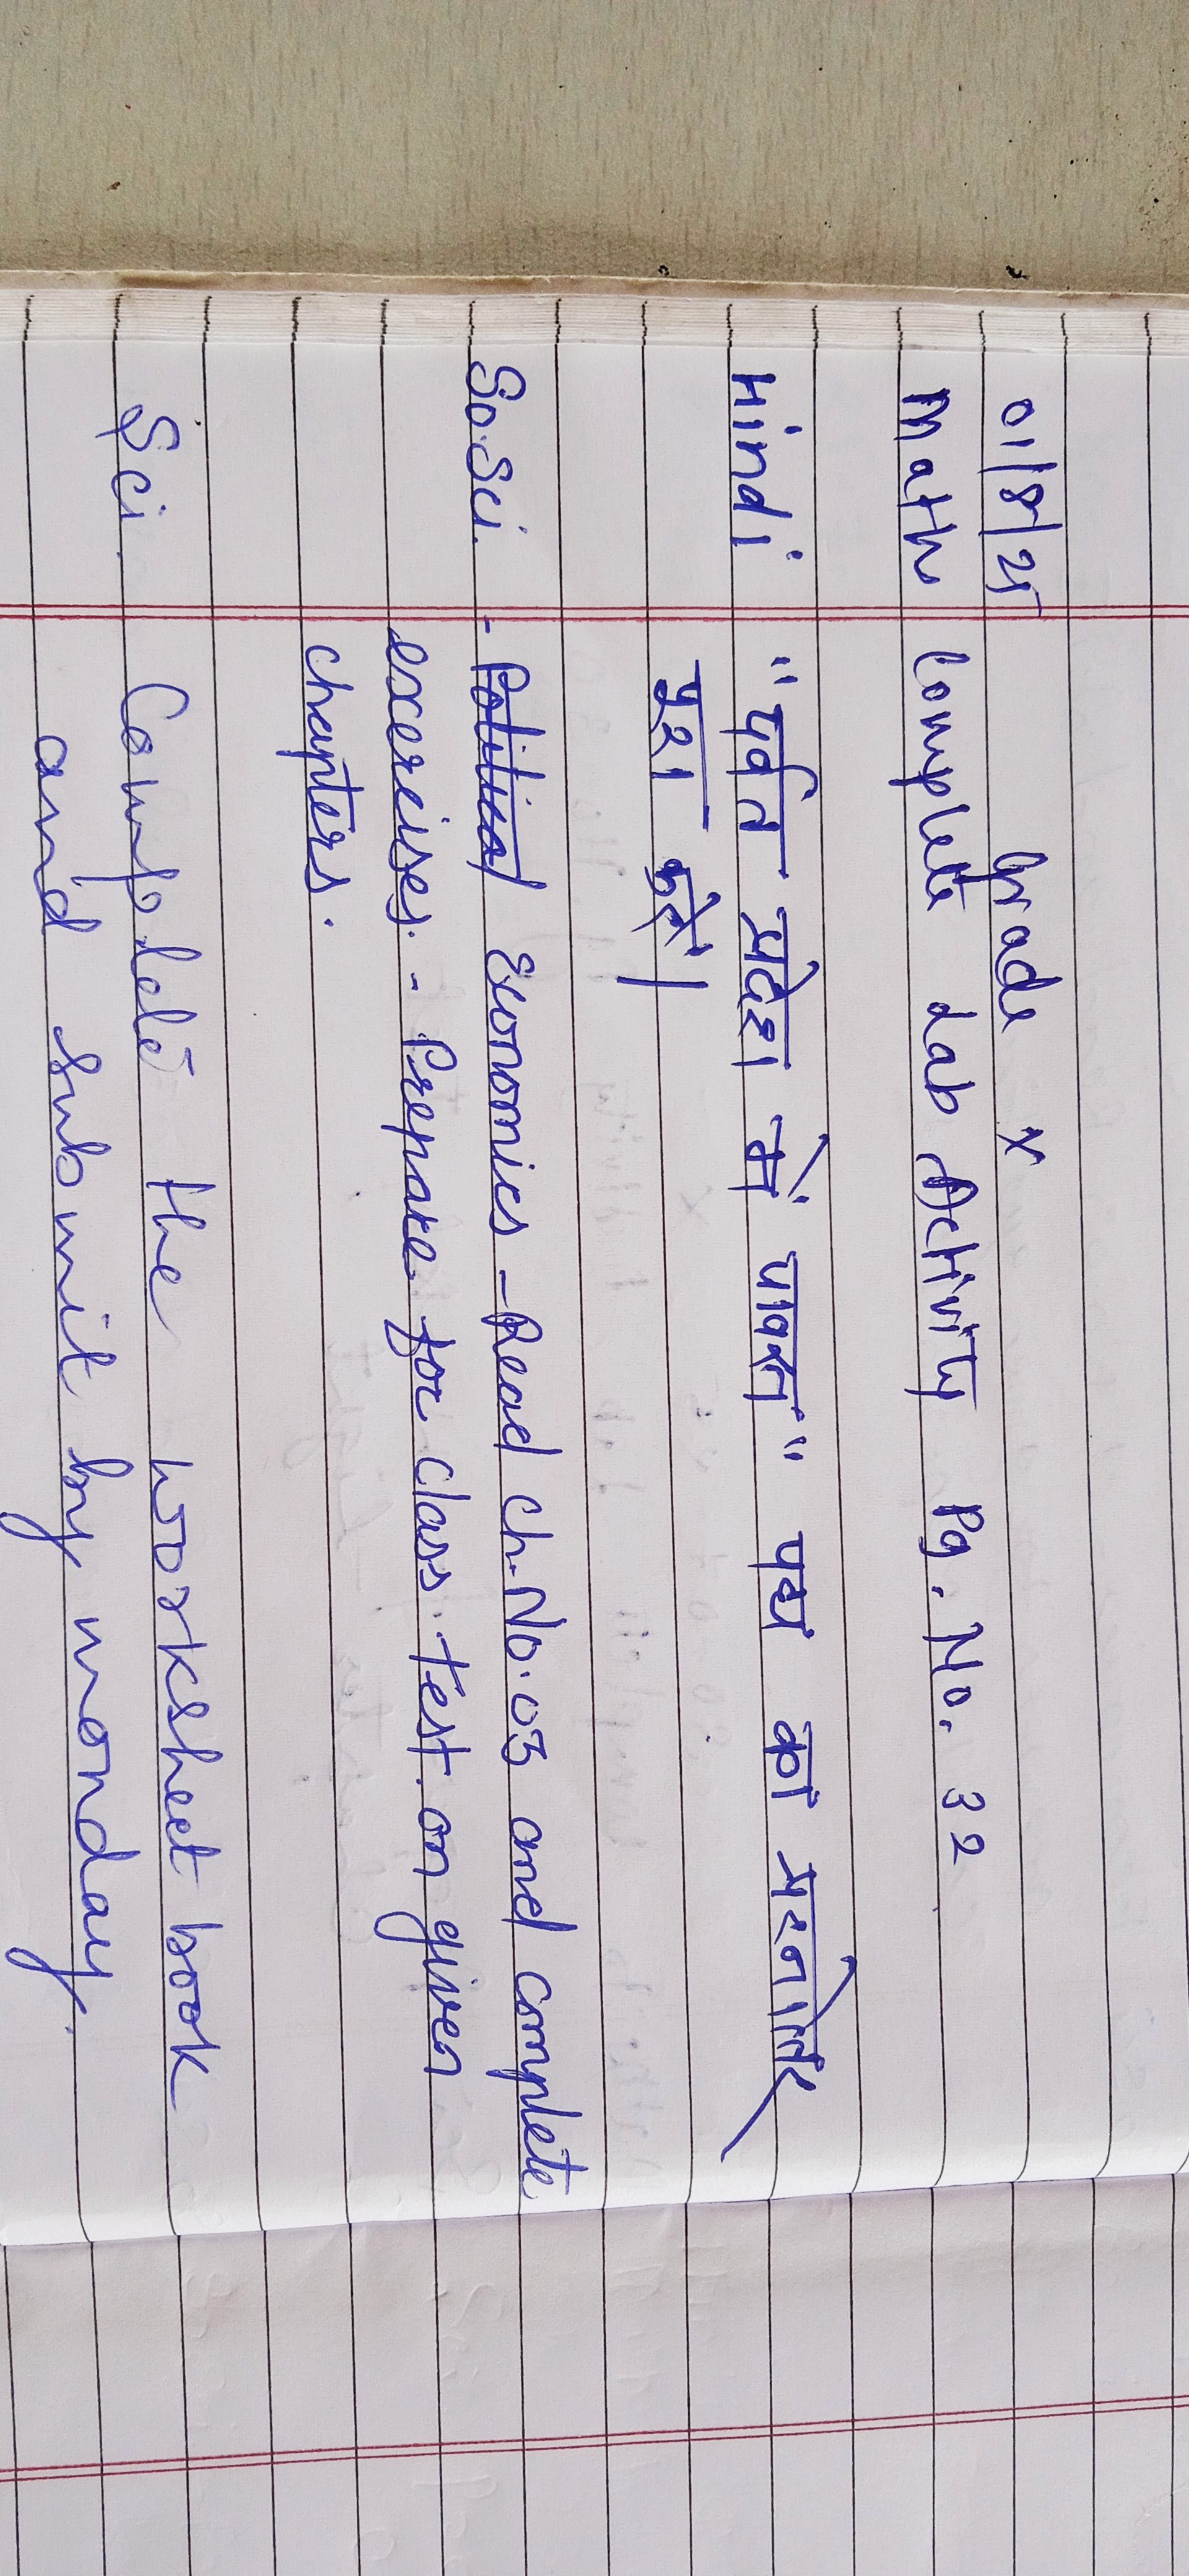 01/8/25 Grade X
Math Complete Lab Activity Pg. No. 32
Hindi "पर्वत प्रदेश में पावस" पद्य का प्रश्नोत्तर
पूरा करें।
So.Sci. - Economics - Read ch. No. 03 and complete
exercises. - Prepare for class test on given
chapters.
Sci. Complete the worksheet book
and submit by monday.